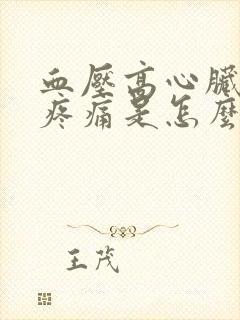 血壓高心臟
疼痛是怎麼
王茂